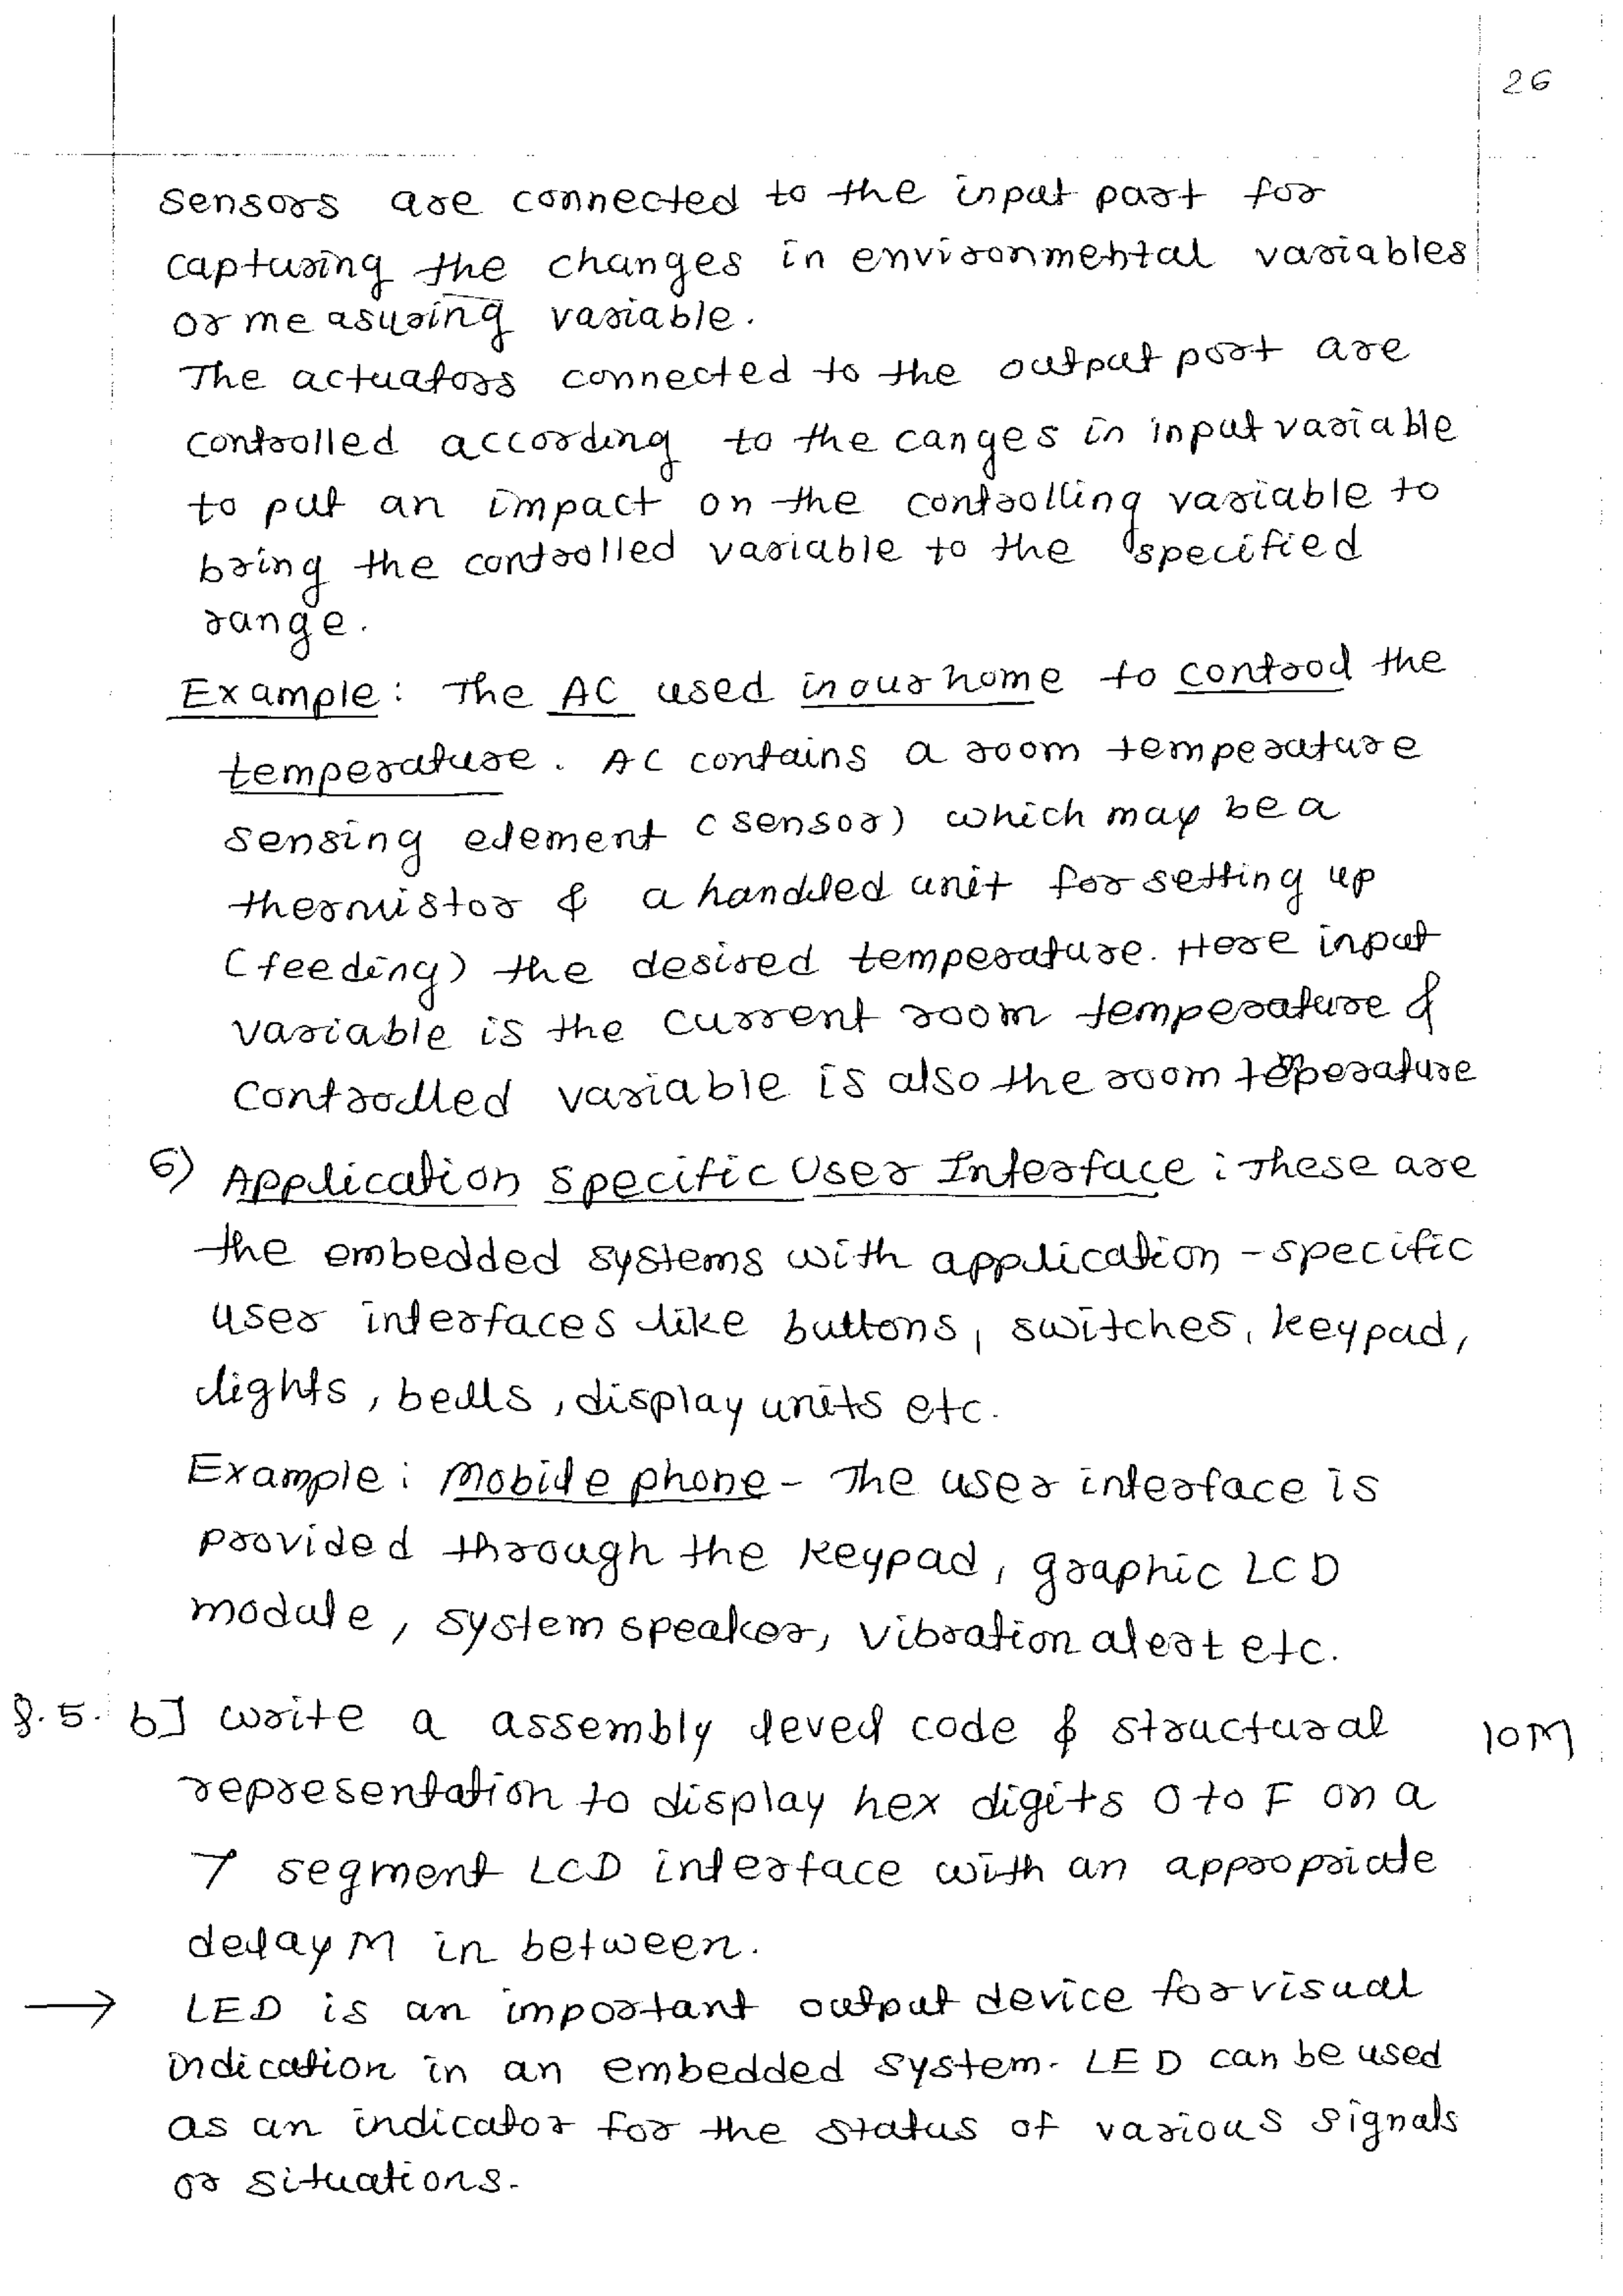 26
sensors are connected to the input part for
capturing the changes in environmental variables
or measuring variable.
The actuators connected to the output port are
controlled according to the canges in input variable
to put an impact on the controlling variable to
bring the controlled variable to the specified
range.
Example: The AC used in our home to control the
temperature. AC contains a room temperature
sensing element (sensor) which may be a
thermistor & a handled unit for setting up
(feeding) the desired temperature. Here input
variable is the current room temperature &
controlled variable is also the room temperature
6) Application Specific User Interface: These are
the embedded systems with application-specific
user interfaces like buttons, switches, keypad,
lights, bells, display units etc.
Example: Mobile phone - The user interface is
provided through the keypad, graphic LCD
module, system speaker, vibration alert etc.
Q.5. b] write a assembly level code & structural 10M
representation to display hex digits 0 to F on a
7 segment LCD interface with an appropriate
delay M in between.
→ LED is an important output device for visual
indication in an embedded system. LED can be used
as an indicator for the status of various signals
or situations.